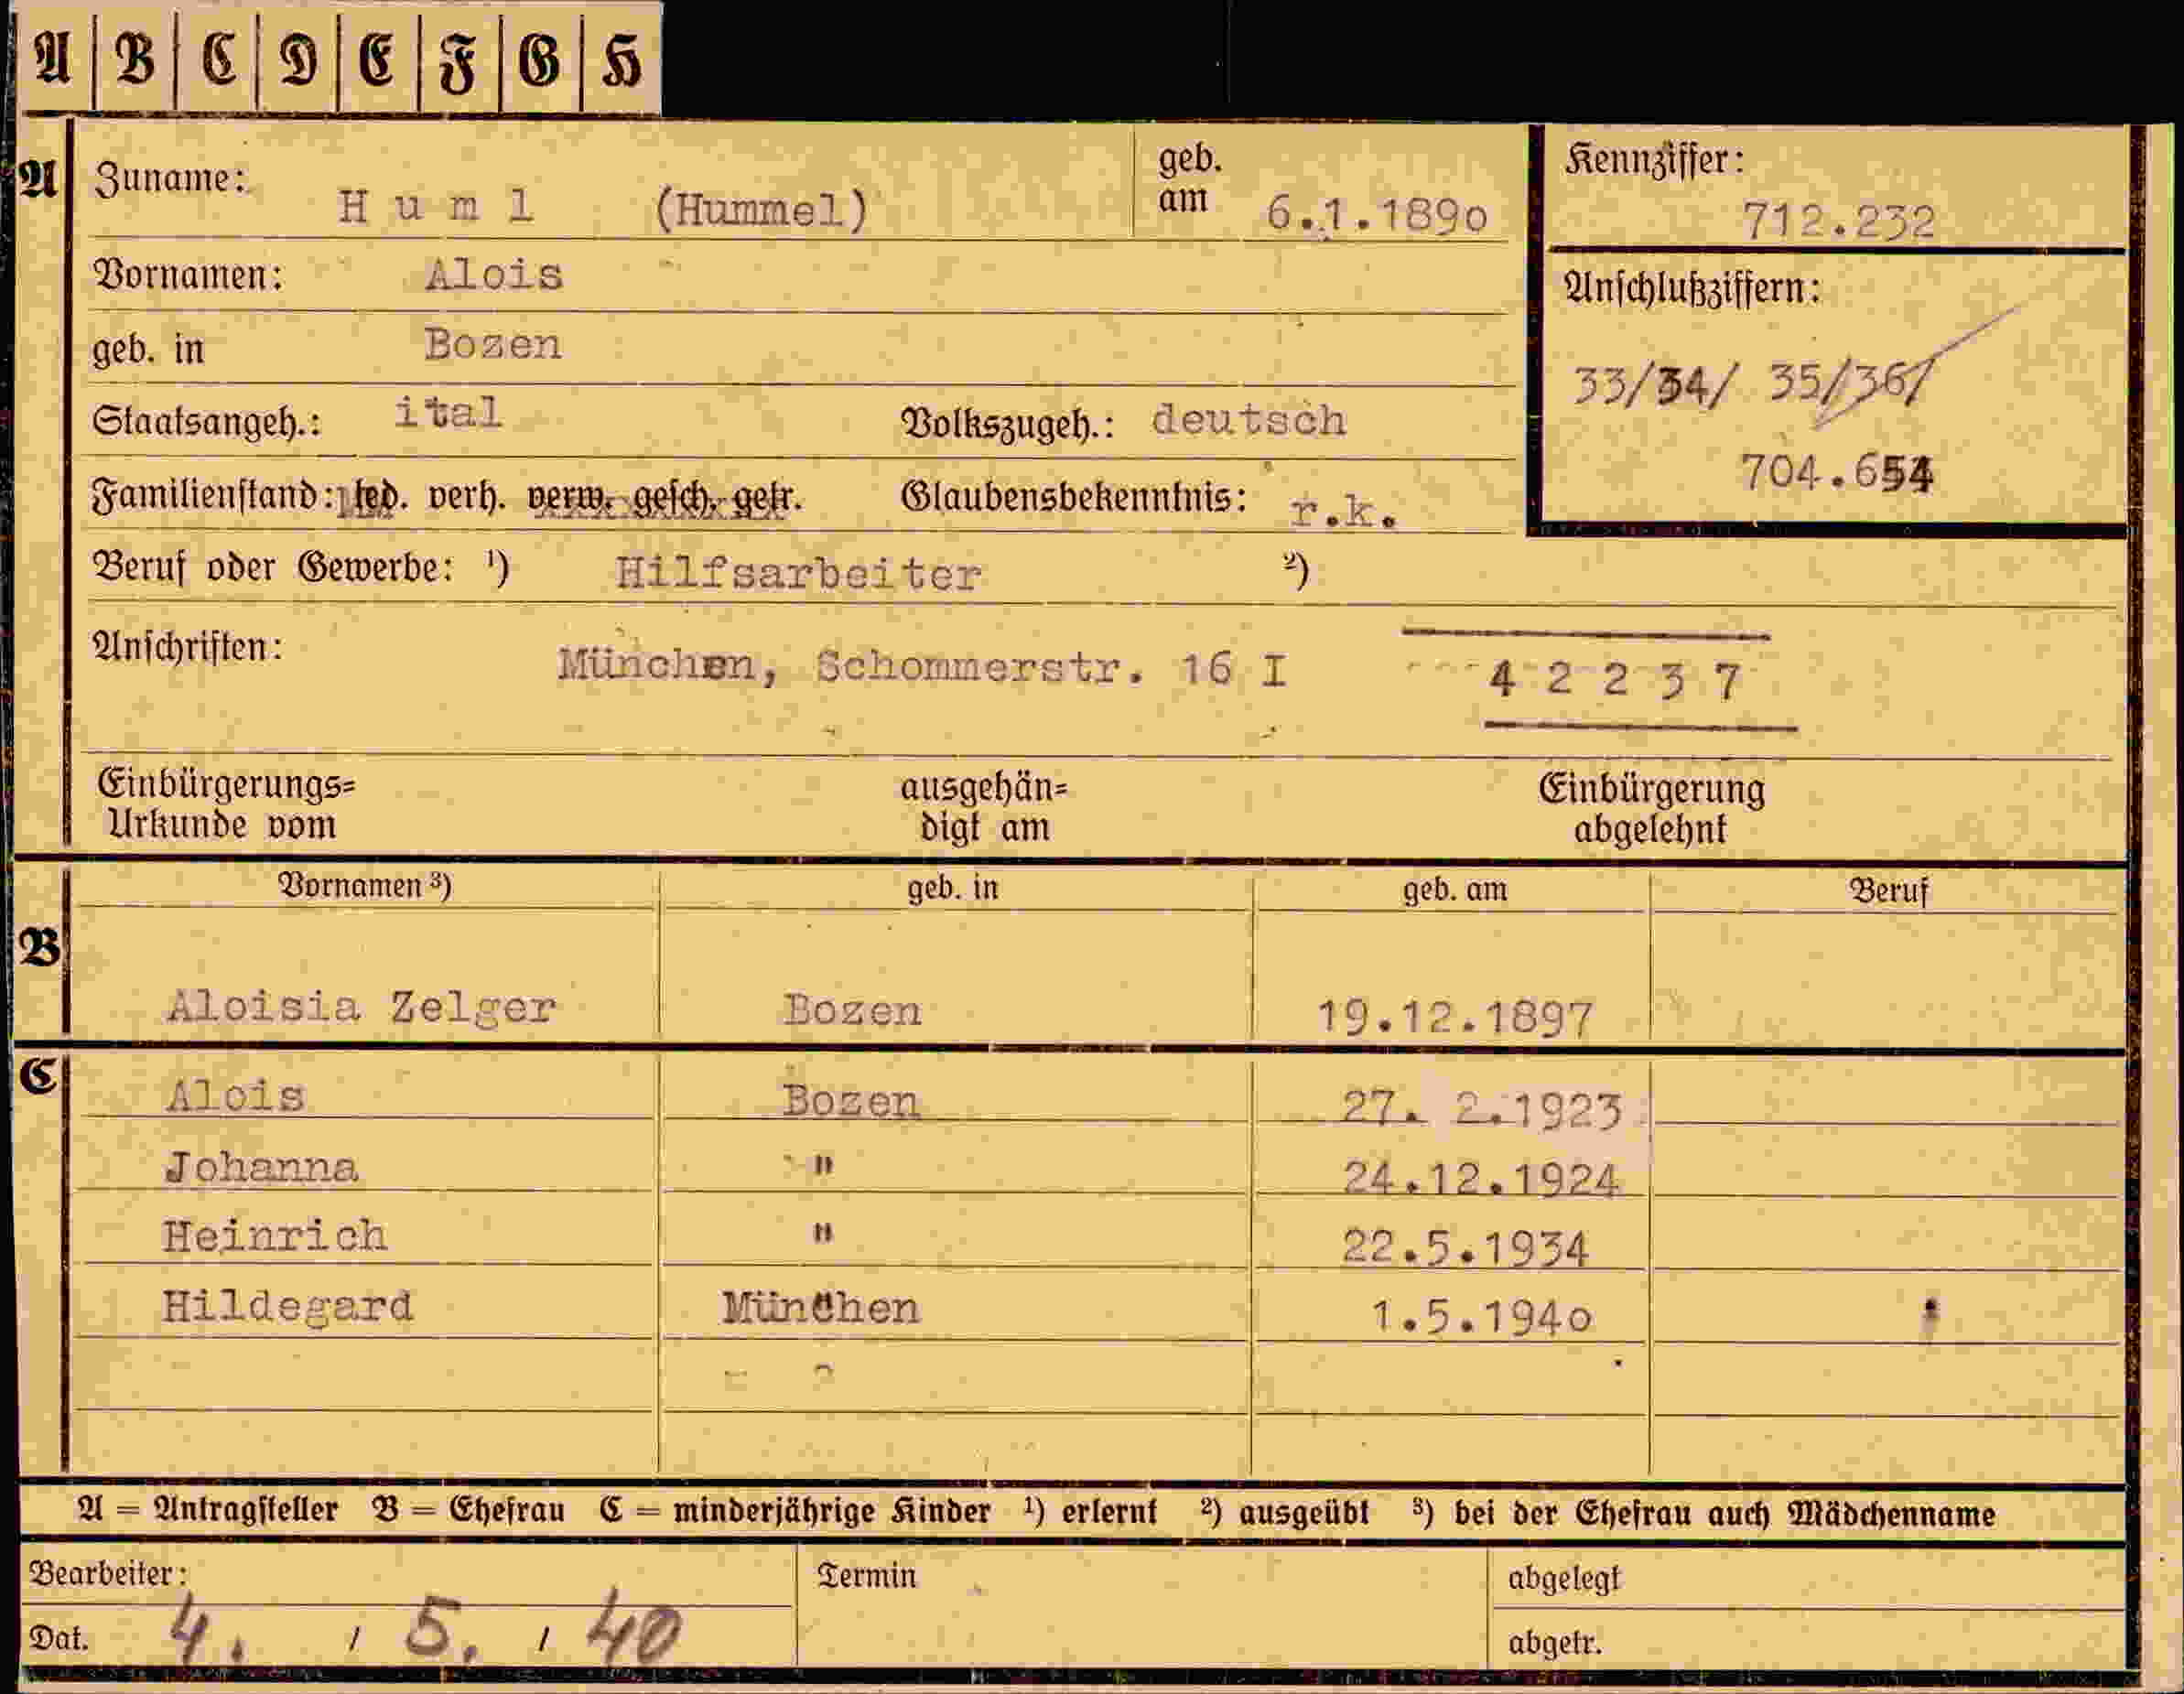 A B C D E F G H
A Zuname: H u m l (Hummel) geb. am 6.1.1890
Kennziffer: 712.232
Vornamen: Alois
Anschlußziffern:
geb. in Bozen
33/34/ 35/36/
Staatsangeh.: ital Volkszugeh.: deutsch
704.654
Familienstand: led. verh. verw. gesch. getr. Glaubensbekenntnis: r.k.
Beruf oder Gewerbe: ¹) Hilfsarbeiter ²)
Anschriften: München, Schommerstr. 16 I 4 2 2 3 7
Einbürgerungs= ausgehän= Einbürgerung
Urkunde vom digt am abgelehnt
Vornamen ³) geb. in geb. am Beruf
B
Aloisia Zelger Bozen 19.12.1897
C Alois Bozen 27. 2.1923
Johanna " 24.12.1924
Heinrich " 22.5.1934
Hildegard München 1.5.1940
A = Antragsteller B = Ehefrau C = minderjährige Kinder ¹) erlernt ²) ausgeübt ³) bei der Ehefrau auch Mädchenname
Bearbeiter: Termin abgelegt
Dat. 4. / 5. / 40 abgetr.